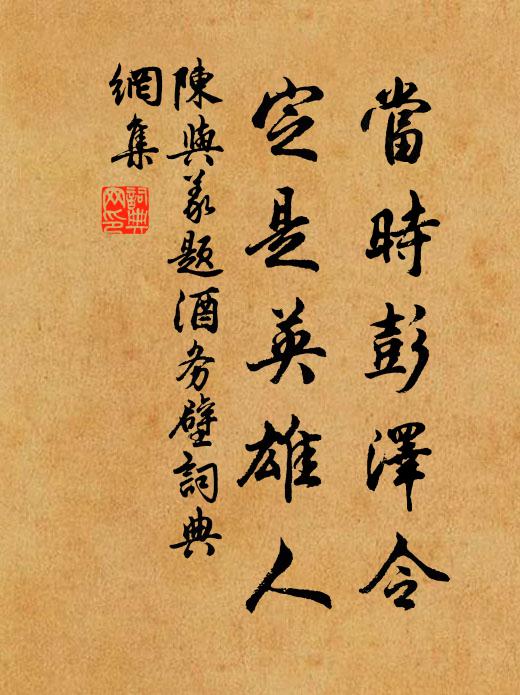 當時彭澤令
定是英雄人
陳與義題酒务壁詞典
網集
詞典
网印